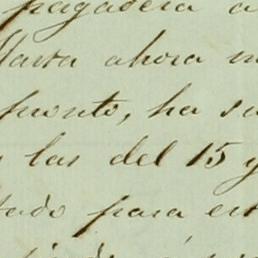 pagadera a
Hasta ahora n
puonto, ha su
y las del 15 y
tado para est